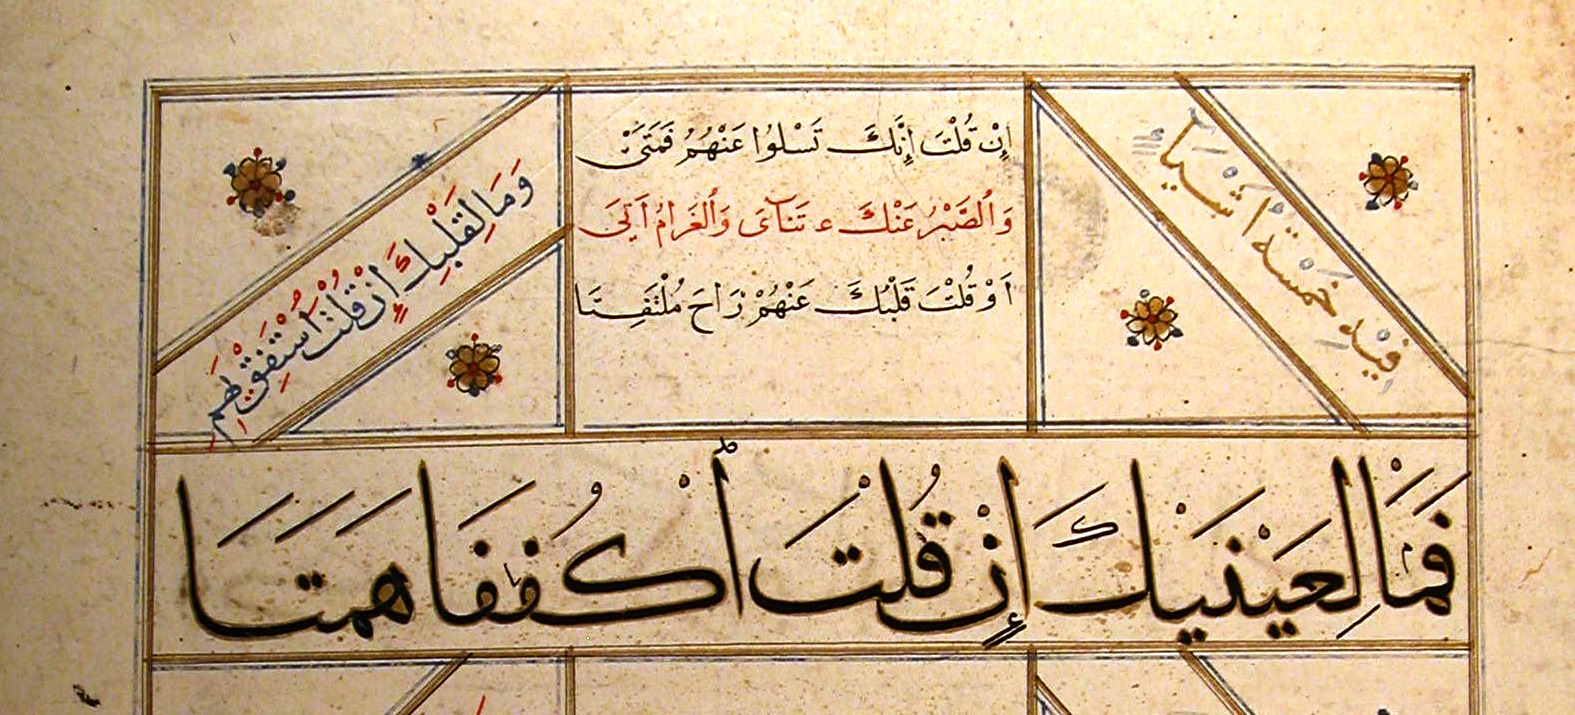 فِيْهِ خَمْسَةُ أَشْيَاءَ
إِنْ قُلْتَ إِنَّكَ تَسْلُوا عَنْهُمُ فَمَتَىٰ
وَالصَّبْرُ عَنْكَ تَنَاءَى وَالْغَرَامُ أَتَى
أَوْ قُلْتَ قَلْبُكَ عَنْهُمْ رَاحَ مُلْتَفِتَا
وَمَا لِقَلْبِكَ إِنْ قُلْتَ اسْتَفِقْ يَهِمِ
فَمَا لِعَيْنَيْكَ إِنْ قُلْتَ أكْفُفَا هَمَتَا